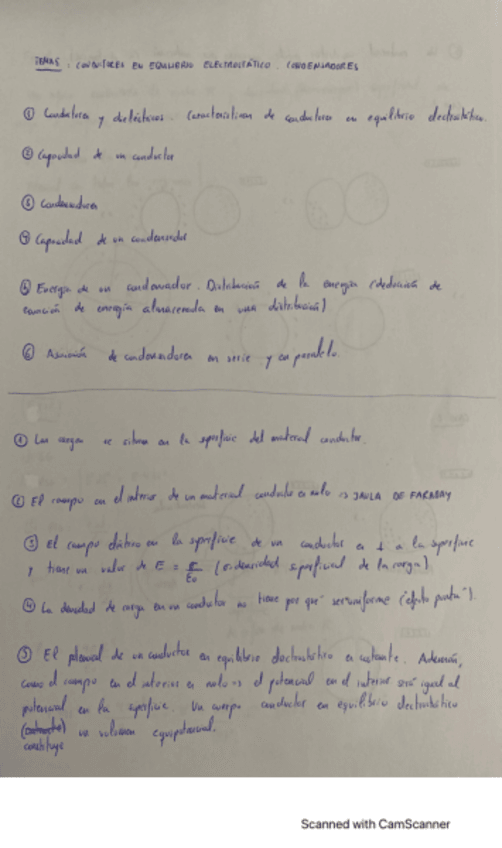 TEMA5: CONDUCTORES EN EQUILIBRIO ELECTROSTÁTICO. CONDENSADORES
① Conductores y dieléctricos. Características de conductores en equilibrio electrostático.
② Capacidad de un conductor
③ Condensadores
④ Capacidad de un condensador
⑤ Energía de un condensador. Distribución de la energía (deducción de
ecuación de energía almacenada en una distribución)
⑥ Asociación de condensadores en serie y en paralelo.
① Las cargas se sitúan en la superficie del material conductor.
② El campo en el interior de un material conductor es nulo => JAULA DE FARADAY
③ El campo eléctrico en la superficie de un conductor es ⊥ a la superficie
y tiene un valor de E = σ/ε₀ (σ: densidad superficial de la carga).
④ La densidad de carga en un conductor no tiene por qué ser uniforme ("efecto punta").
⑤ El potencial de un conductor en equilibrio electrostático es constante. Además,
como el campo en el interior es nulo => el potencial en el interior será igual al
potencial en la superficie. Un cuerpo conductor en equilibrio electrostático
constituye un volumen equipotencial.
Scanned with CamScanner